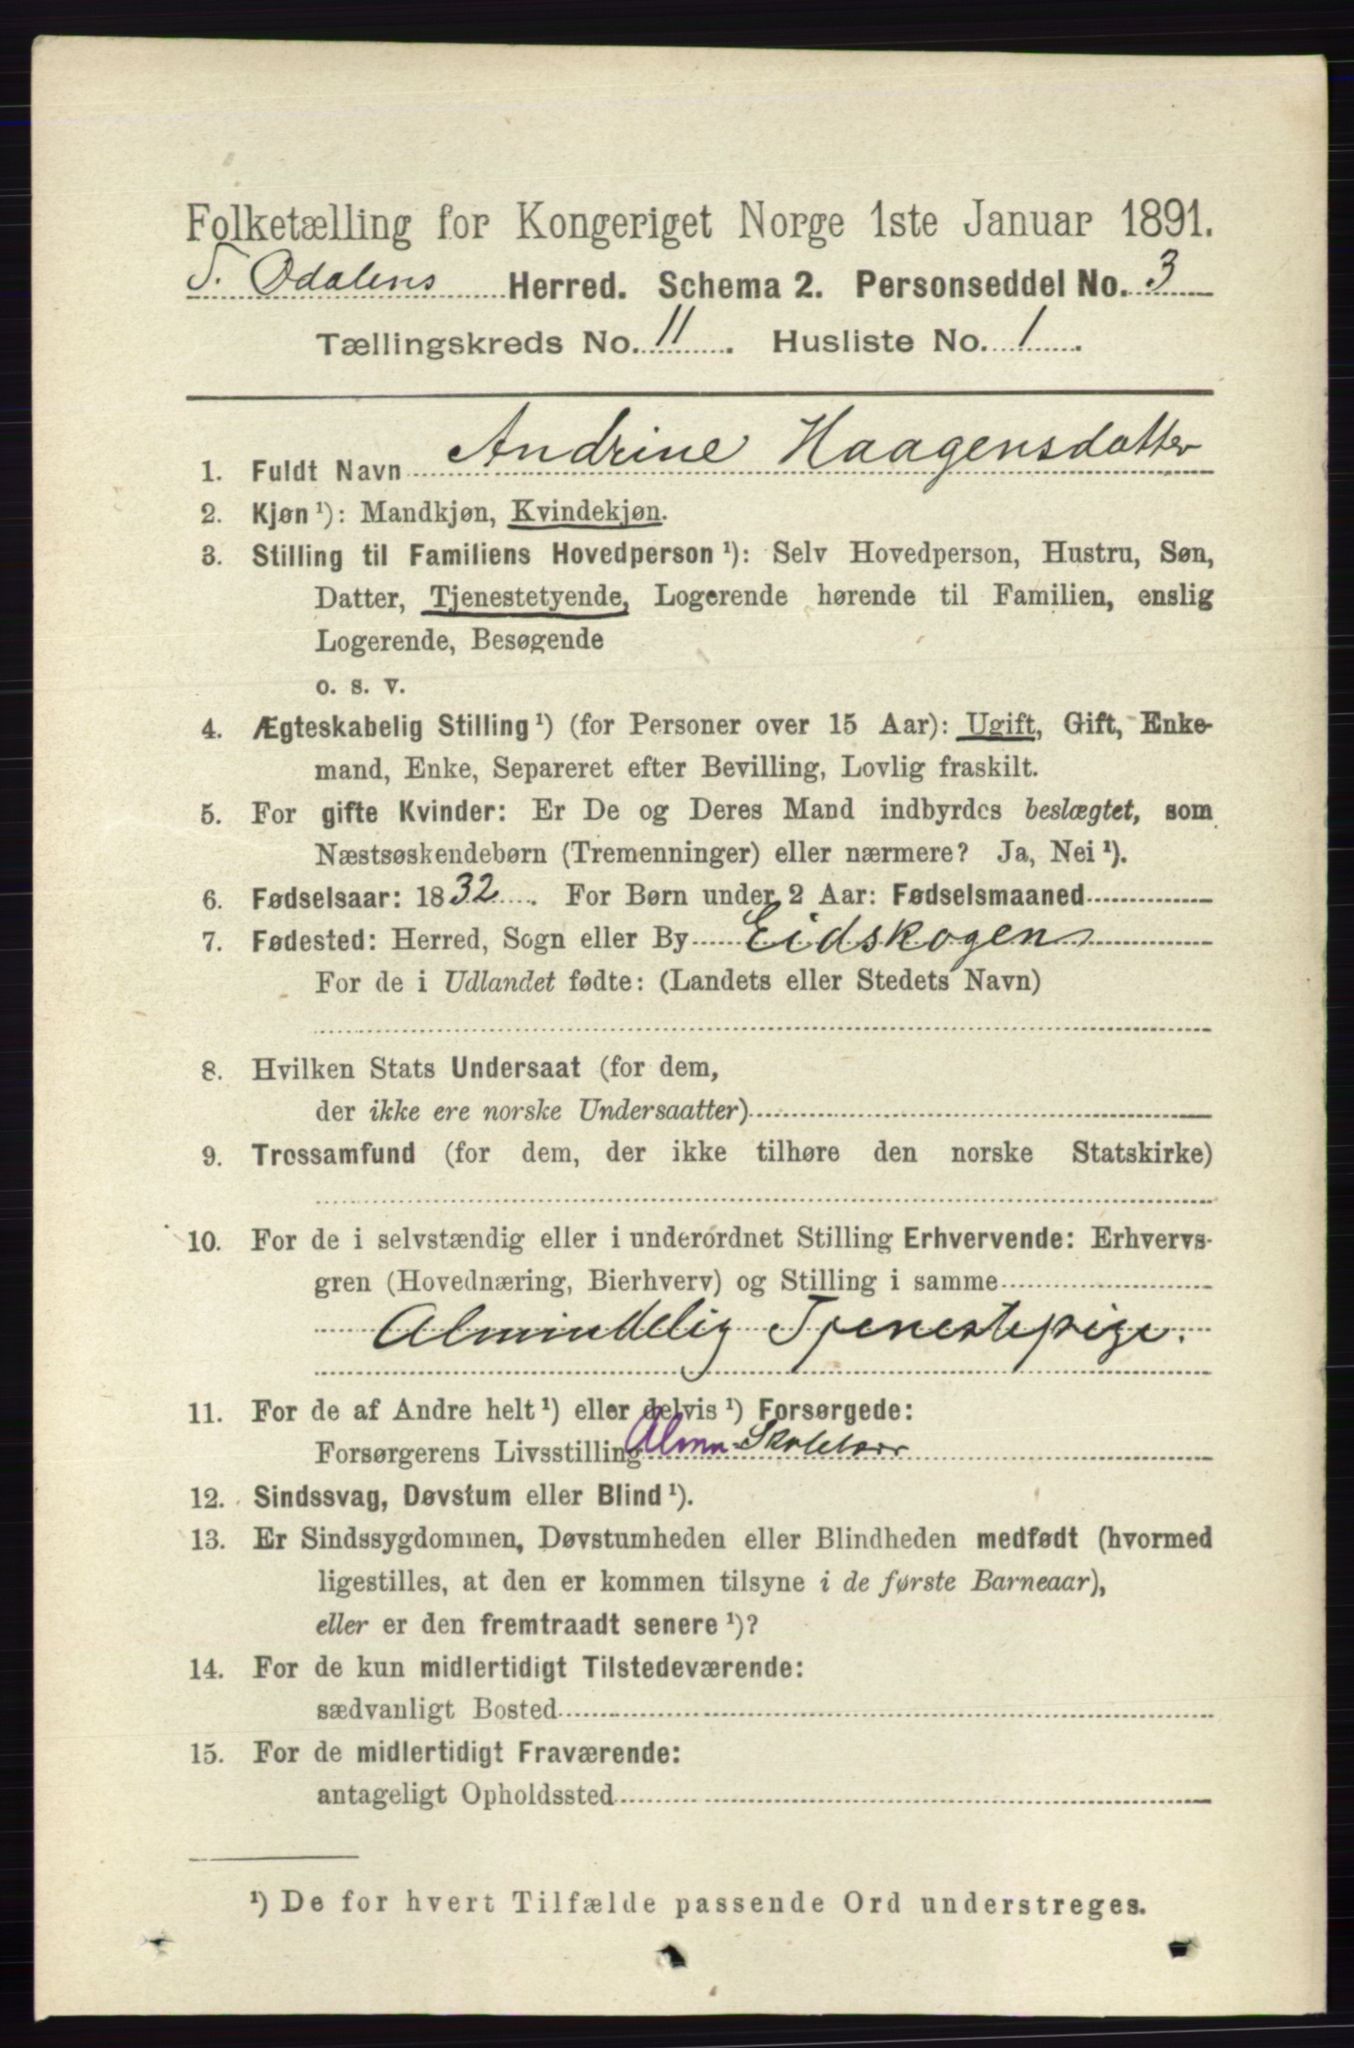 Folketælling for Kongeriget Norge 1ste Januar 1891.
S. Odalens Herred. Schema 2. Personseddel No. 3
Tællingskreds No. 11. Husliste No. 1.
1. Fuldt Navn Andrine Haagensdatter
2. Kjøn ¹): Mandkjøn, Kvindekjøn.
3. Stilling til Familiens Hovedperson ¹): Selv Hovedperson, Hustru, Søn,
Datter, Tjenestetyende, Logerende hørende til Familien, enslig
Logerende, Besøgende
o. s. v.
4. Ægteskabelig Stilling ¹) (for Personer over 15 Aar): Ugift, Gift, Enke-
mand, Enke, Separeret efter Bevilling, Lovlig fraskilt.
5. For gifte Kvinder: Er De og Deres Mand indbyrdes beslægtet, som
Næstsøskendebørn (Tremenninger) eller nærmere? Ja, Nei ¹).
6. Fødselsaar: 1832. For Børn under 2 Aar: Fødselsmaaned
7. Fødested: Herred, Sogn eller By Eidskogen
For de i Udlandet fødte: (Landets eller Stedets Navn)
8. Hvilken Stats Undersaat (for dem,
der ikke ere norske Undersaatter)
9. Trossamfund (for dem, der ikke tilhøre den norske Statskirke)
10. For de i selvstændig eller i underordnet Stilling Erhvervende: Erhvervs-
gren (Hovednæring, Bierhverv) og Stilling i samme
Almindelig Tjenestepige.
11. For de af Andre helt ¹) eller delvis ¹) Forsørgede:
Forsørgerens Livsstilling
12. Sindssvag, Døvstum eller Blind ¹).
13. Er Sindssygdommen, Døvstumheden eller Blindheden medfødt (hvormed
ligestilles, at den er kommen tilsyne i de første Barneaar),
eller er den fremtraadt senere ¹)?
14. For de kun midlertidigt Tilstedeværende:
sædvanligt Bosted
15. For de midlertidigt Fraværende:
antageligt Opholdssted
¹) De for hvert Tilfælde passende Ord understreges.